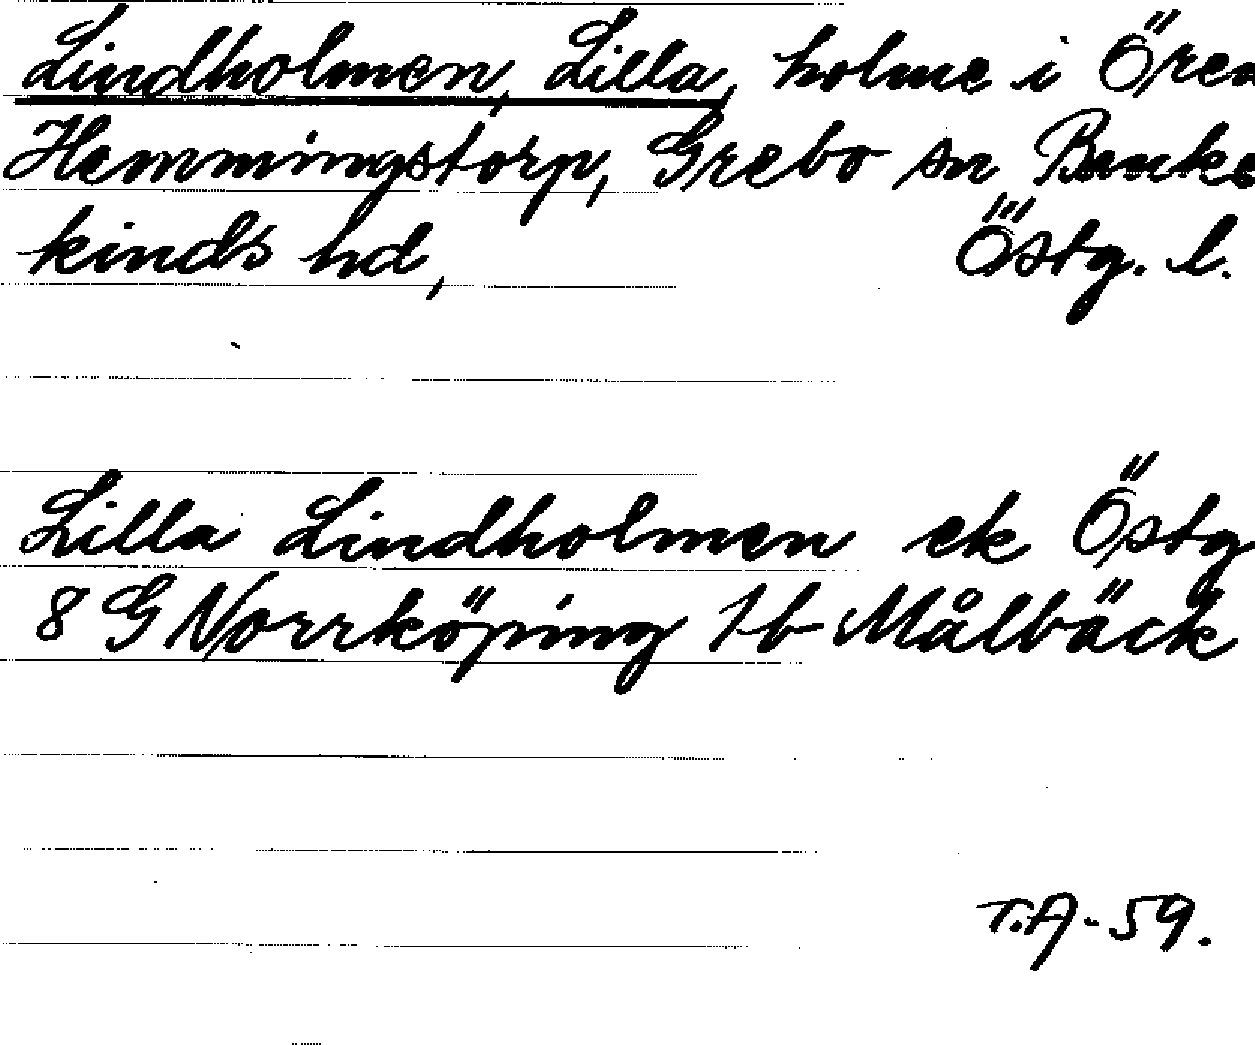 Lindholmen, Lilla, holme i Ören
Hemmingstorp, Grebo sn Banke
kinds hd, Östg. l.
Lilla Lindholmen ek Östg
8 G Norrköping 1b Målbäck
T.A-59.